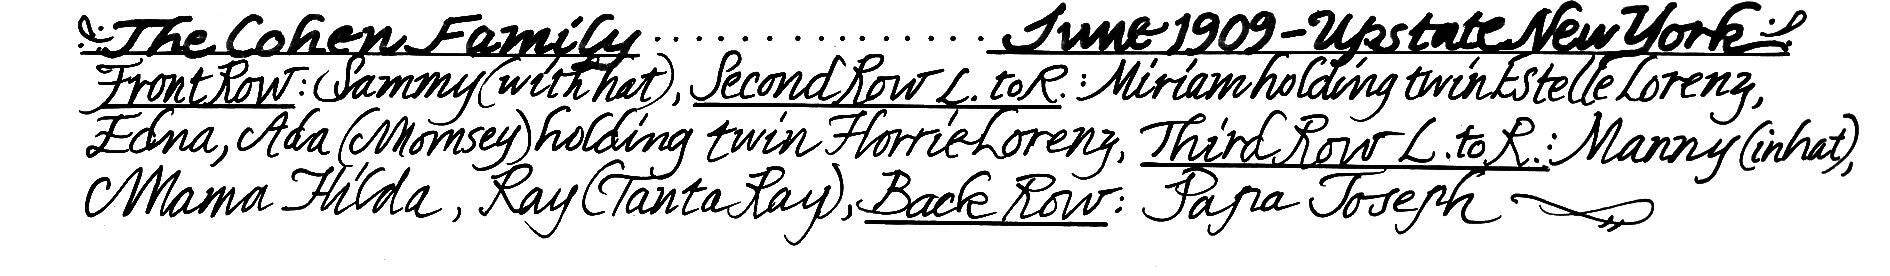 The Cohen Family ............... June 1909 - Upstate New York
Front Row: Sammy (with hat), Second Row L. to R.: Miriam holding twin Estelle Lorenz,
Edna, Ada (Momsey) holding twin Florrie Lorenz, Third Row L. to R.: Manny (in hat),
Mama Hilda, Ray (Tanta Ray), Back Row: Papa Joseph